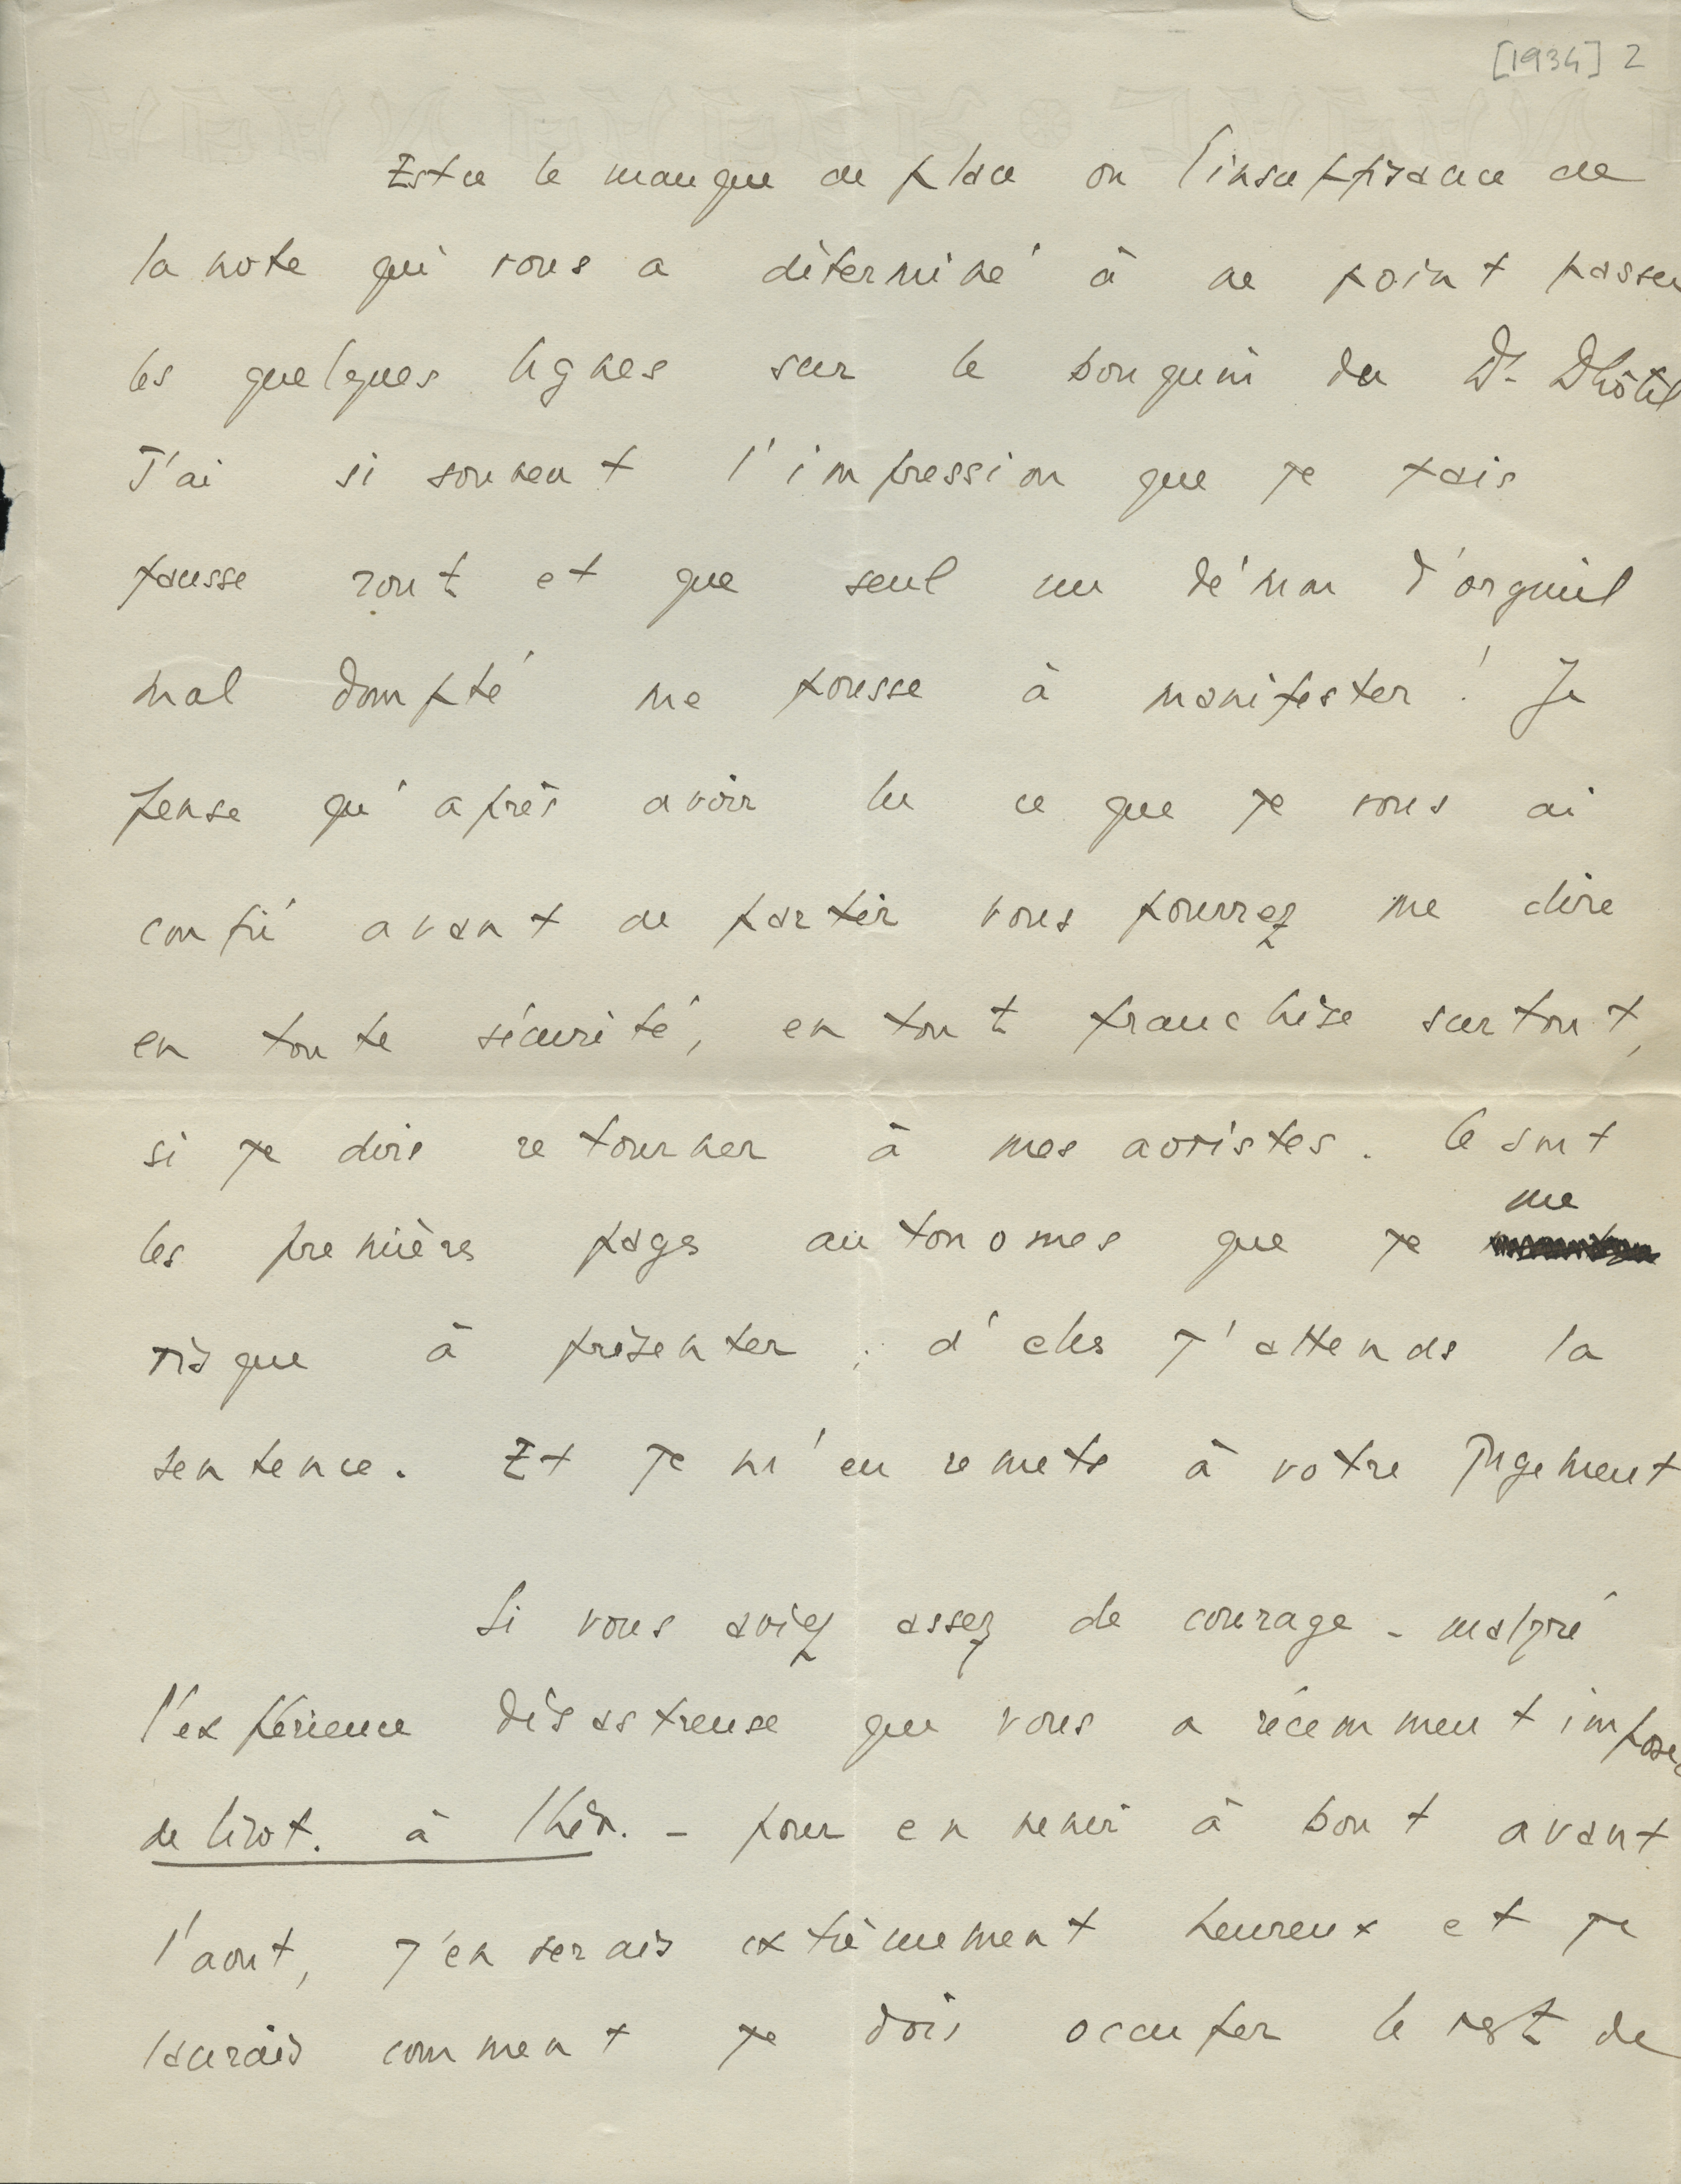 [1934] 2
Est ce le manque de place ou l'insuffisance de
la note qui vous a déterminé à ne point passer
les quelques lignes sur le bouquin du Dr Dhôtel
J'ai si souvent l'impression que je fais
fausse rout et que seul un démon d'orgueil
mal dompté me pousse à manifester ! Je
pense qu'après avoir lu ce que je vous ai
confié avant de partir vous pourrez me dire
en toute sécurité, en tout franchise surtout,
si je dois retourner à mes aoristes. Ce sont
les premières pages autonomes que je me
risque à présenter ; d'elles j'attends la
sentence. Et je m'en remets à votre jugement
Si vous aviez assez de courage - malgré
l'expérience désastreuse que vous a récemment imposée
- pour en venir à bout avant
l'aout, j'en serais extrèmement heureux et je
saurais comment je dois occuper le rest de